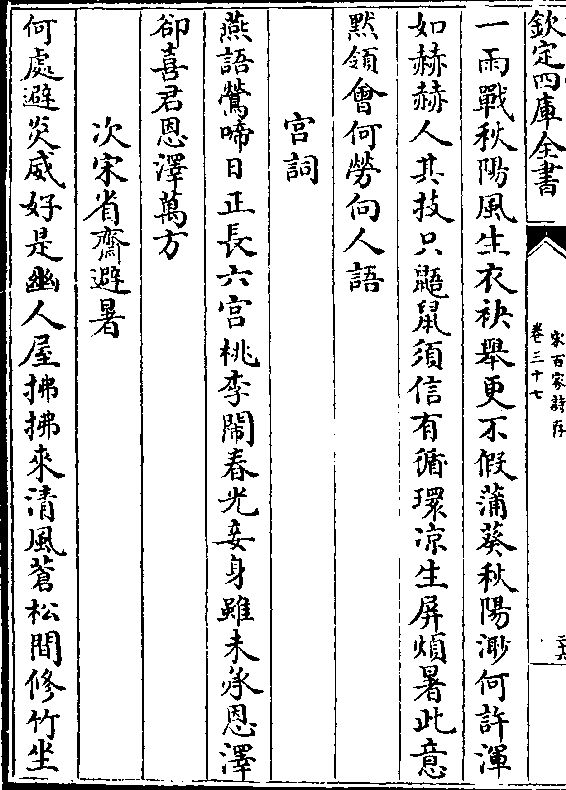 欽定四庫全書
宋百家詩存
卷三十七
一雨戰秋陽風生衣袂舉更不假蒲葵秋陽渺何許渾
如赫赫人其技只鼯鼠須信有循環凉生屏煩暑此意
黙領會何勞向人語
宫詞
燕語鶯啼日正長六宫桃李鬧春光妾身雖未承恩澤
卻喜君恩澤萬方
次宋省齋避暑
何處避炎威好是幽人屋拂拂來清風蒼松間修竹坐